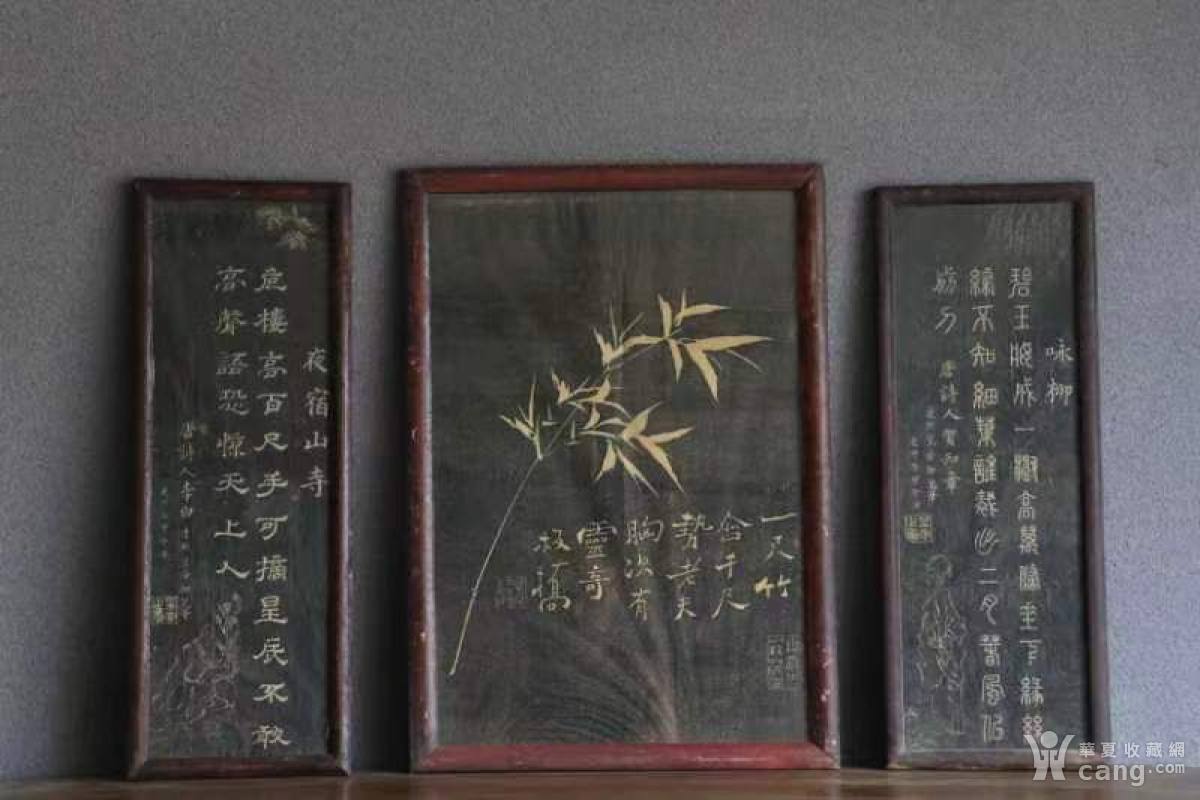 夜宿山寺
危樓高百尺手可摘星辰不敢
高聲語恐惊天上人
唐詩人李白
一尺竹
含千尺
勢老夫
胸次有
靈奇
板橋
咏柳
碧玉妝成一樹高萬條垂下綠絲
絛不知細葉誰裁出二月春風似
剪刀
唐詩人賀知章
華夏收藏網
cang.com